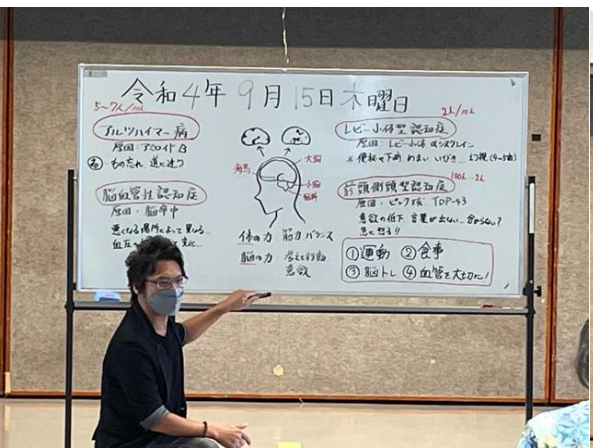 令和4年9月15日木曜日
5~7人/10人
アルツハイマー病
原因：アミロイドβ
もの忘れ 道に迷う
脳血管性認知症
原因：脳卒中
悪くなる場所によって異なる…
血圧
海馬
大脳
小脳
脳幹
体の力：筋力 バランス
脳の力：考えて行動
意欲
2人/10人
レビー小体型認知症
原因：レビー小体 αシヌクレイン
※便秘や下痢 めまい いびき 幻視
前頭側頭型認知症
原因：ピック球 TDP-43
意欲の低下 言葉が出ない
急に怒る!!
①運動 ②食事
③脳トレ ④血管を大切に!